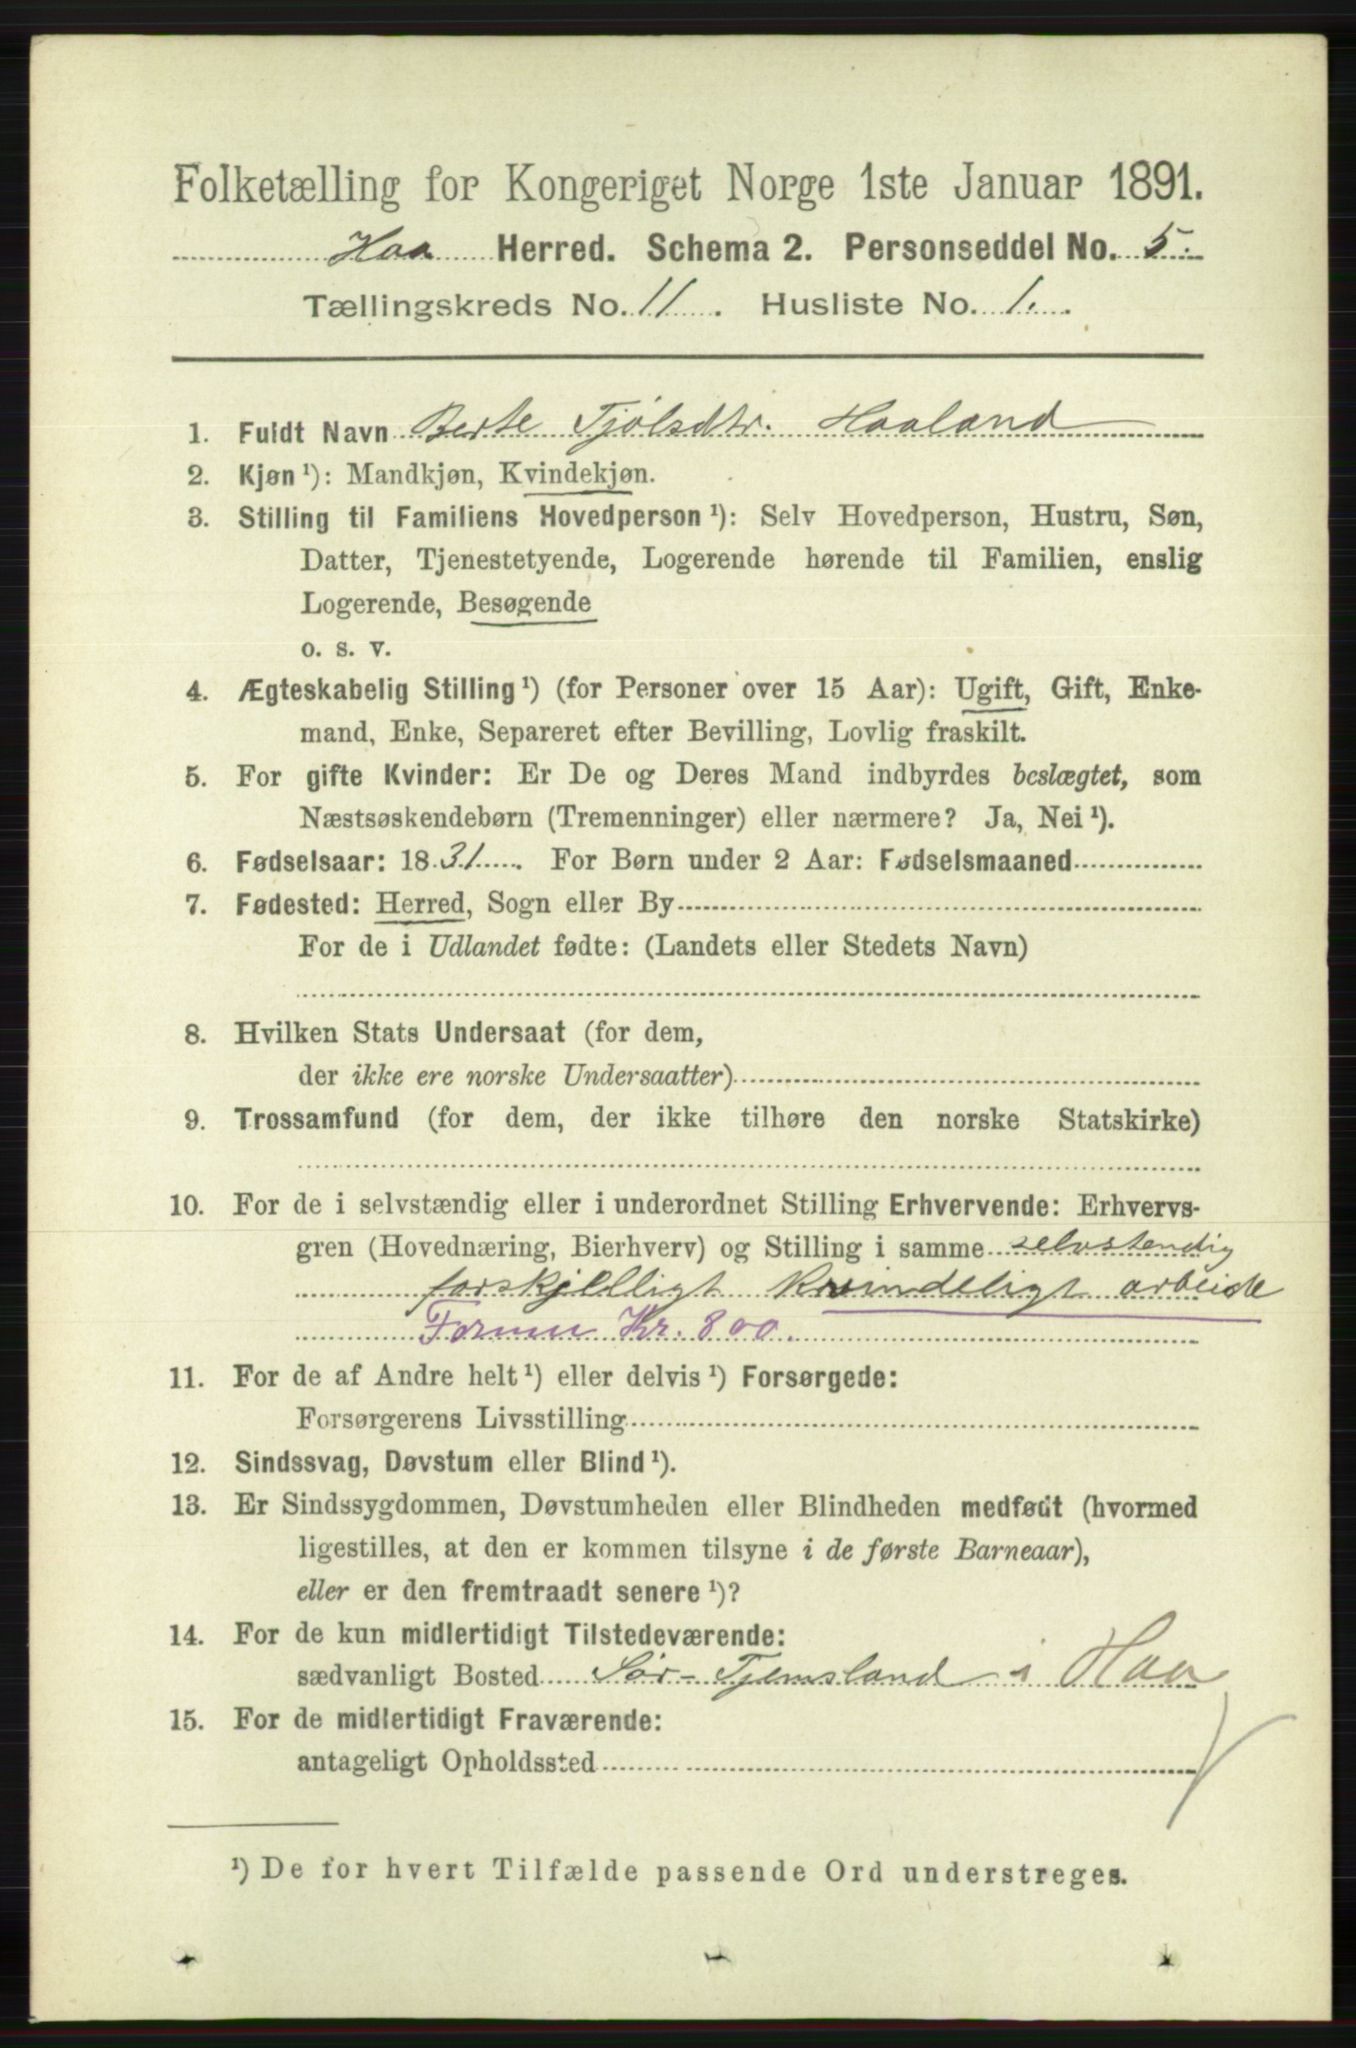 Folketælling for Kongeriget Norge 1ste Januar 1891.
Haa Herred. Schema 2. Personseddel No. 5.
Tællingskreds No. 11. Husliste No. 1.
1. Fuldt Navn Berte Tjølsdtr. Haaland
2. Kjøn ¹): Mandkjøn, Kvindekjøn.
3. Stilling til Familiens Hovedperson ¹): Selv Hovedperson, Hustru, Søn,
Datter, Tjenestetyende, Logerende hørende til Familien, enslig
Logerende, Besøgende
o. s. v.
4. Ægteskabelig Stilling ¹) (for Personer over 15 Aar): Ugift, Gift, Enke-
mand, Enke, Separeret efter Bevilling, Lovlig fraskilt.
5. For gifte Kvinder: Er De og Deres Mand indbyrdes beslægtet, som
Næstsøskendebørn (Tremenninger) eller nærmere? Ja, Nei ¹).
6. Fødselsaar: 1831. For Børn under 2 Aar: Fødselsmaaned
7. Fødested: Herred, Sogn eller By
For de i Udlandet fødte: (Landets eller Stedets Navn)
8. Hvilken Stats Undersaat (for dem,
der ikke ere norske Undersaatter)
9. Trossamfund (for dem, der ikke tilhøre den norske Statskirke)
10. For de i selvstændig eller i underordnet Stilling Erhvervende: Erhvervs-
gren (Hovednæring, Bierhverv) og Stilling i samme selvstendig
forskjelligt kvindeligt arbeide
Formue Kr. 800.
11. For de af Andre helt ¹) eller delvis ¹) Forsørgede:
Forsørgerens Livsstilling
12. Sindssvag, Døvstum eller Blind ¹).
13. Er Sindssygdommen, Døvstumheden eller Blindheden medfødt (hvormed
ligestilles, at den er kommen tilsyne i de første Barneaar),
eller er den fremtraadt senere ¹)?
14. For de kun midlertidigt Tilstedeværende:
sædvanligt Bosted Sør-Tjemsland i Haa
15. For de midlertidigt Fraværende:
antageligt Opholdssted
¹) De for hvert Tilfælde passende Ord understreges.